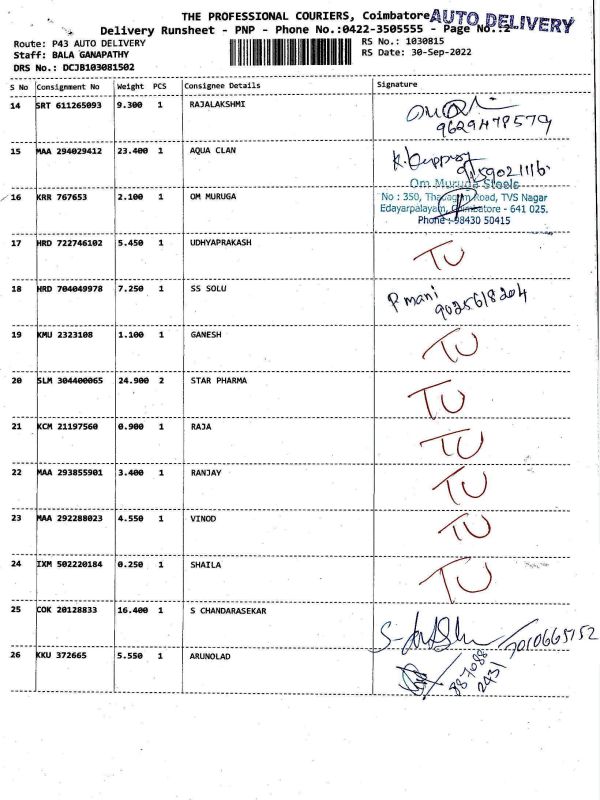 THE PROFESSIONAL COURIERS, Coimbatore AUTO DELIVERY
Delivery Runsheet - PNP - Phone No.:0422-3505555 - Page No.:2
Route: P43 AUTO DELIVERY RS No.: 1030815
Staff: BALA GANAPATHY RS Date: 30-Sep-2022
DRS No.: DCJB103081502
S No Consignment No Weight PCS Consignee Details Signature
14 SRT 611265093 9.300 1 RAJALAKSHMI
9629478579
15 MAA 294029412 23.400 1 AQUA CLAN
16 KRR 767653 2.100 1 OM MURUGA
Om Muruga Steels
No : 350, Thadagam Road, TVS Nagar
Edayarpalayam, Coimbatore - 641 025.
Phone : 98430 50415
17 HRD 722746102 5.450 1 UDHYAPRAKASH TU
18 HRD 704049978 7.250 1 SS SOLU P mani
9025618204
19 KMU 2323108 1.100 1 GANESH TU
20 SLM 304400065 24.900 2 STAR PHARMA TU
21 KCM 21197560 0.900 1 RAJA TU
22 MAA 293855901 3.400 1 RANJAY TU
23 MAA 292288023 4.550 1 VINOD TU
24 IXM 502220184 0.250 1 SHAILA TU
25 COK 20128833 16.400 1 S CHANDARASEKAR
7010665752
26 KKU 372665 5.550 1 ARUNOLAD
887088
2431